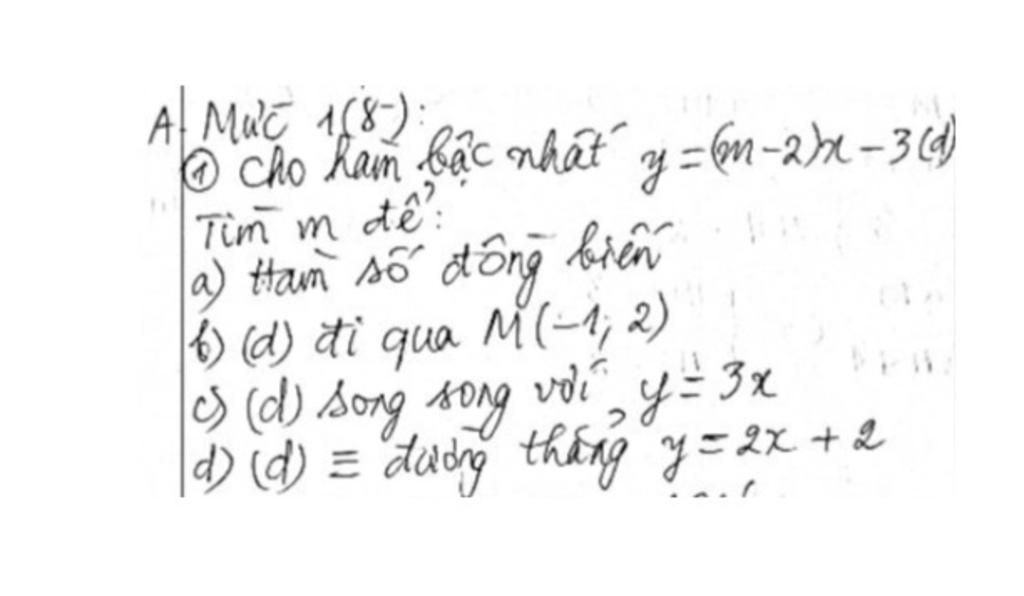 A. Mức 1(8-):
① Cho hàm bậc nhất y = (m-2)x - 3 (d)
Tìm m để:
a) Hàm số đồng biến
b) (d) đi qua M(-1; 2)
c) (d) song song với y = 3x
d) (d) ≡ đường thẳng y = 2x + 2